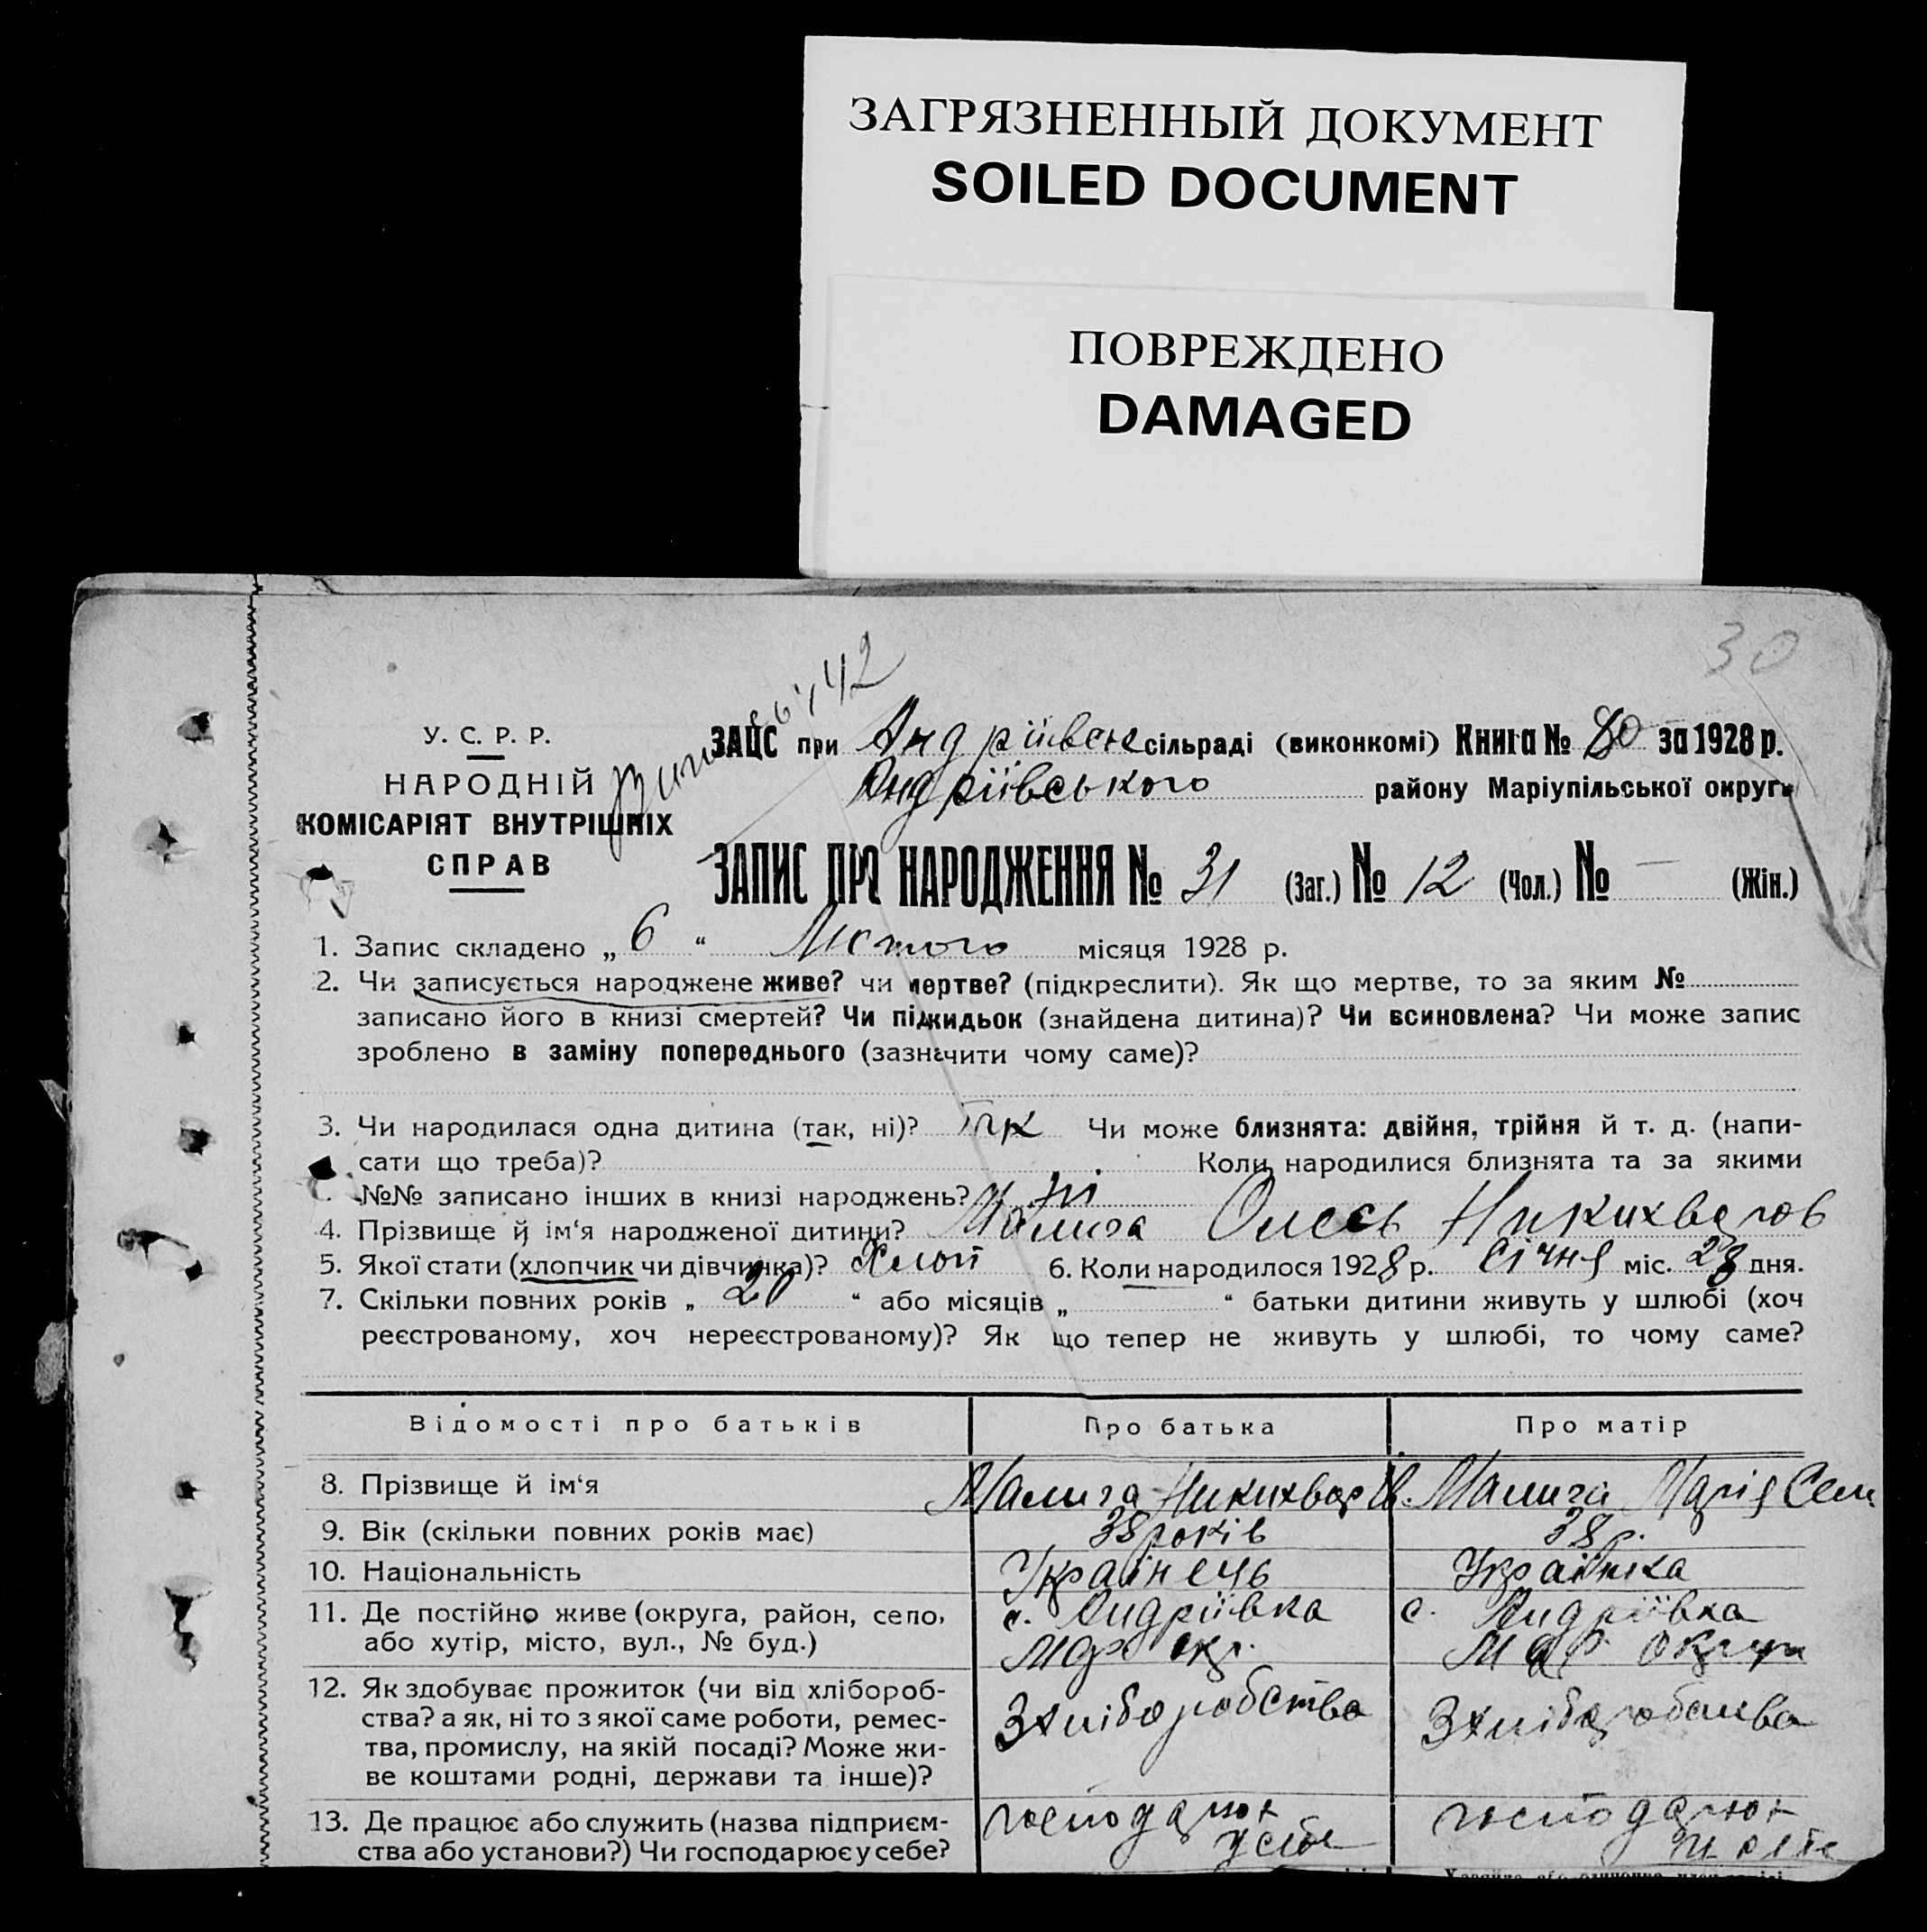 ЗАГРЯЗНЕННЫЙ ДОКУМЕНТ
SOILED DOCUMENT
ПОВРЕЖДЕНО
DAMAGED
30
У. С. Р. Р.
НАРОДНІЙ
КОМІСАРІЯТ ВНУТРІШНІХ
СПРАВ
ЗАЦС при Андріївськ сільраді (виконкомі) Книга № 80 за 1928 р.
Андріївського району Маріупільської округи
ЗАПИС ПРО НАРОДЖЕННЯ № 31 (Заг.) № 12 (Чол.) № — (Жін.)
1. Запис складено „ 6 “ Лютого місяця 1928 р.
2. Чи записується народжене живе? чи мертве? (підкреслити). Як що мертве, то за яким №
записано його в книзі смертей? Чи підкидьок (знайдена дитина)? Чи всиновлена? Чи може запис
зроблено в заміну попереднього (зазначити чому саме)?
3. Чи народилася одна дитина (так, ні)? Так Чи може близнята: двійня, трійня й т. д. (напи-
сати що треба)? Коли народилися близнята та за якими
№№ записано інших в книзі народжень? ні
4. Прізвище й ім‘я народженої дитини? Малига Олесь Никихваров
5. Якої стати (хлопчик чи дівчинка)? Хлоп 6. Коли народилося 1928 р. Січня міс. 28 дня.
7. Скільки повних років „ 20 “ або місяців „ “ батьки дитини живуть у шлюбі (хоч
реєстрованому, хоч нереєстрованому)? Як що тепер не живуть у шлюбі, то чому саме?
Відомості про батьків Про батька Про матір
8. Прізвище й ім‘я Малига Никихвар Ів. Малига Марія Сем
9. Вік (скільки повних років має) 38 років 38 р.
10. Національність Українець Українка
11. Де постійно живе (округа, район, село, с. Андріївка с. Андріївка
або хутір, місто, вул., № буд.) Мар окр. Мар. округи
12. Як здобуває прожиток (чи від хлібороб-
ства? а як, ні то з якої саме роботи, ремес- З хліборобства З хліборобства
тва, промислу, на якій посаді? Може жи-
ве коштами родні, держави та інше)?
13. Де працює або служить (назва підприєм- господарює господарює
ства або установи?) Чи господарює у себе? у себе